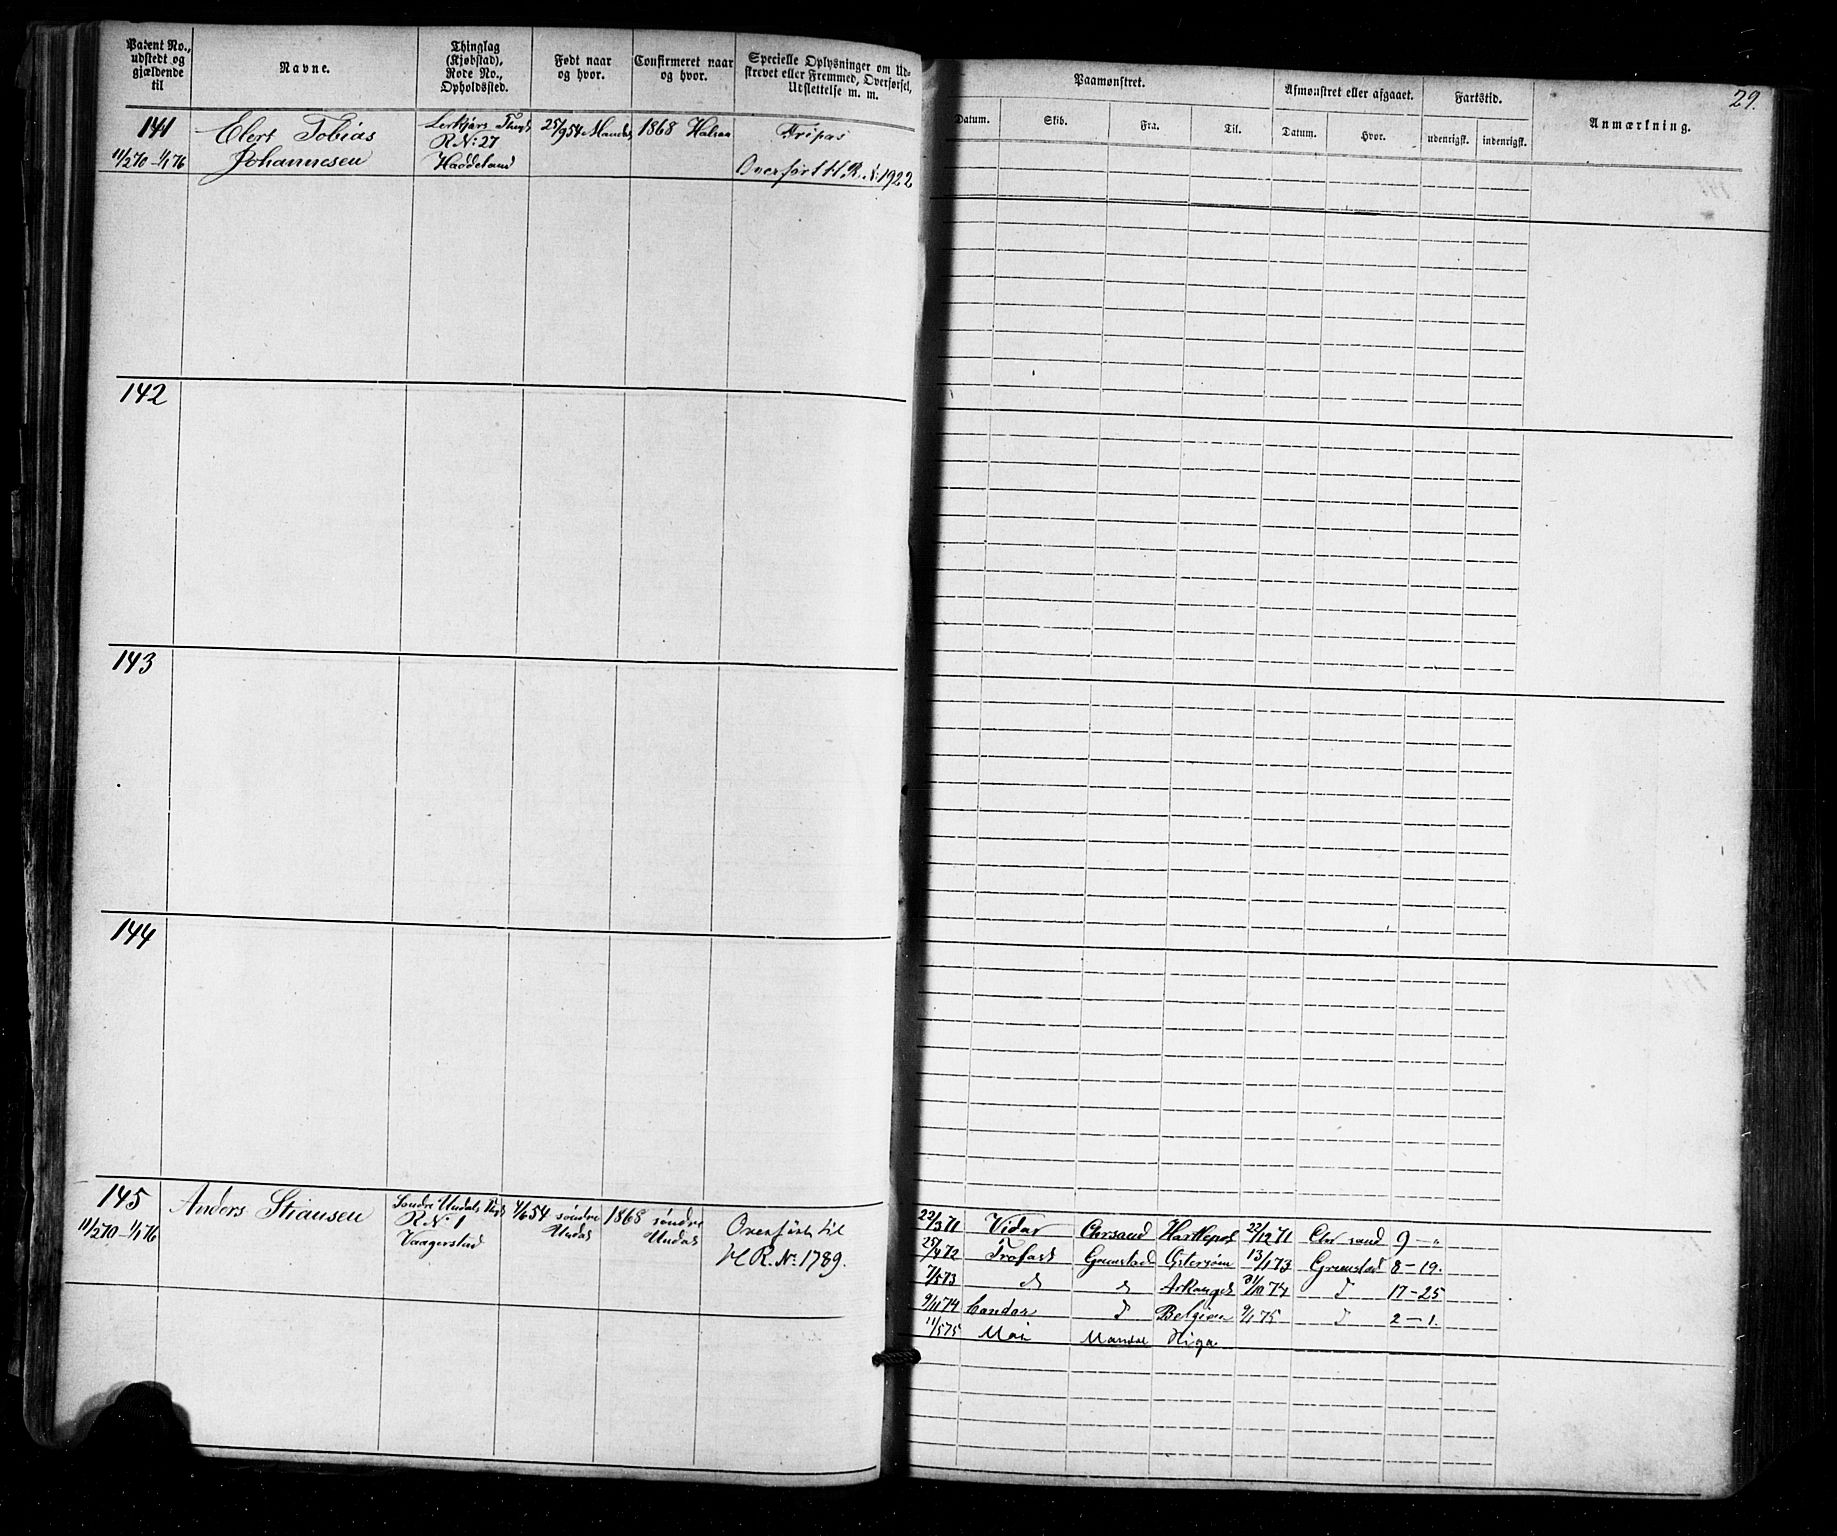 Patent No., udstedt og gjældende til
Navne.
Thinglag (Kjøbstad), Rode No., Opholdssted.
Født naar og hvor.
Confirmeret naar og hvor.
Specielle Oplysninger om Udskrevet eller Fremmed, Overførsel, Udslettelse m. m.
Paamønstret.
Afmønstret eller afgaaet.
Fartstid.
Anmærkning.
29.
Datum.
Skib.
Fra.
Til.
Datum.
Hvor.
udenrigsk.
indenrigsk.
141
11/2 70 - 1/1 76
Elert Tobias
Johannesen
R N: 27
Haddeland
25/9 54 Mandal
1868 Halsaa
Overført H R N: 1922
142
143
144
145
11/2 70 - 1/1 76
Anders Stiansen
Søndre Undals Thgl
R N: 1
Vaagerstad
4/6 54 søndre
Undal
1868 søndre
Undal
Overført til
H R. No: 1789.
22/3 71 Vidar Chrsand Hartlepol 22/12 71 Chrsand 9 - "
25/4 72 Trofast Grimstad Østersøen 13/1 73 Grimstad 8 - 19.
7/5 73 d d Arkangel 31/10 74 d 17 - 25
9/11 74 Condor d Belgien 9/1 75 d 2 - 1.
11/5 75 Mai Mandal Riga